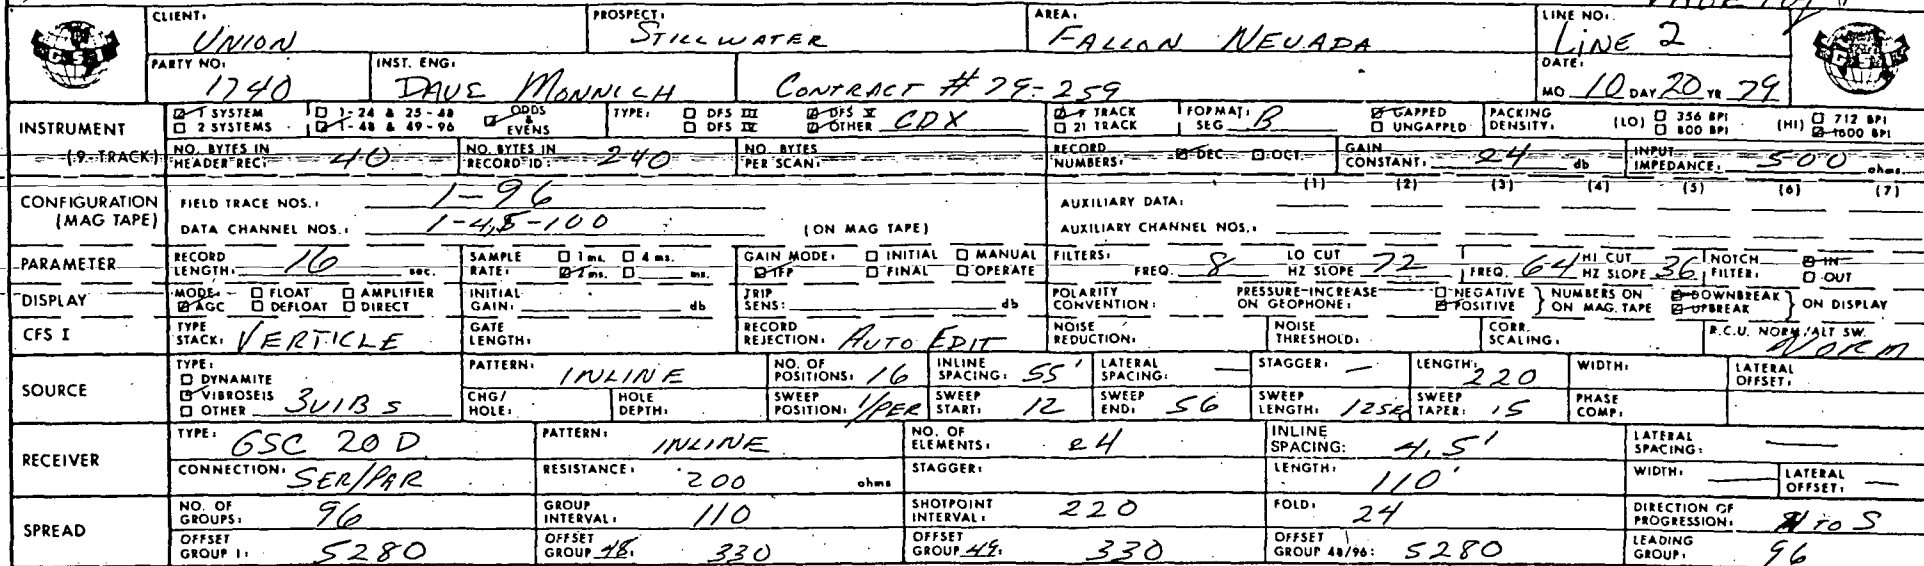 CLIENT: UNION PROSPECT: STILLWATER AREA: FALLON NEVADA LINE NO.: LINE 2
GSI GSI
PARTY NO: 1740 INST. ENG: DAVE MONNICH CONTRACT # 79-259 DATE: MO 10 DAY 20 YR 79
INSTRUMENT ☑ 1 SYSTEM □ 1-24 & 25-48 ☑ ODDS & EVENS TYPE: □ DFS III ☑ DFS V ☑ 9 TRACK FORMAT: SEG B ☑ GAPPED PACKING DENSITY: (LO) □ 356 BPI (HI) □ 712 BPI
□ 2 SYSTEMS ☑ 1-48 & 49-96 □ DFS IV ☑ OTHER CDX □ 21 TRACK □ UNGAPPED □ 800 BPI ☑ 1600 BPI
(9-TRACK) NO. BYTES IN HEADER REC: 40 NO. BYTES IN RECORD ID: 240 NO. BYTES PER SCAN: RECORD NUMBERS: ☑ DEC. □ OCT. GAIN CONSTANT: 24 db INPUT IMPEDANCE: 500 ohms
(1) (2) (3) (4) (5) (6) (7)
CONFIGURATION (MAG TAPE) FIELD TRACE NOS.: 1-96 AUXILIARY DATA:
DATA CHANNEL NOS.: 1-4,5-100 (ON MAG TAPE) AUXILIARY CHANNEL NOS.:
PARAMETER RECORD LENGTH: 16 sec. SAMPLE RATE: □ 1 ms. □ 4 ms. ☑ 2 ms. □ ms. GAIN MODE: □ INITIAL □ MANUAL ☑ IFP □ FINAL □ OPERATE FILTERS: FREQ. 8 LO CUT HZ SLOPE 72 FREQ. 64 HI CUT HZ SLOPE 36 NOTCH FILTER: ☑ IN □ OUT
DISPLAY MODE: □ FLOAT □ AMPLIFIER ☑ AGC □ DEFLOAT □ DIRECT INITIAL GAIN: db TRIP SENS: db POLARITY CONVENTION: PRESSURE INCREASE ON GEOPHONE: □ NEGATIVE ☑ POSITIVE } NUMBERS ON ON MAG. TAPE ☑ DOWNBREAK ☑ UPBREAK } ON DISPLAY
CFS I TYPE STACK: VERTICLE GATE LENGTH: RECORD REJECTION: AUTO EDIT NOISE REDUCTION: NOISE THRESHOLD: CORR. SCALING: R.C.U. NORM/ALT SW. NORM
SOURCE TYPE: □ DYNAMITE ☑ VIBROSEIS □ OTHER 3 VIBS PATTERN: INLINE NO. OF POSITIONS: 16 INLINE SPACING: 55' LATERAL SPACING: — STAGGER: — LENGTH: 220 WIDTH: LATERAL OFFSET:
CHG/HOLE: HOLE DEPTH: SWEEP POSITION: 1/PER SWEEP START: 12 SWEEP END: 56 SWEEP LENGTH: 12 SEC SWEEP TAPER: .5 PHASE COMP:
RECEIVER TYPE: GSC 20 D PATTERN: INLINE NO. OF ELEMENTS: 24 INLINE SPACING: 4.5' LATERAL SPACING: —
CONNECTION: SER/PAR RESISTANCE: 200 ohms STAGGER: LENGTH: 110' WIDTH: — LATERAL OFFSET: —
SPREAD NO. OF GROUPS: 96 GROUP INTERVAL: 110 SHOTPOINT INTERVAL: 220 FOLD: 24 DIRECTION OF PROGRESSION: N TO S
OFFSET GROUP 1: 5280 OFFSET GROUP 48: 330 OFFSET GROUP 49: 330 OFFSET GROUP 48/96: 5280 LEADING GROUP: 96